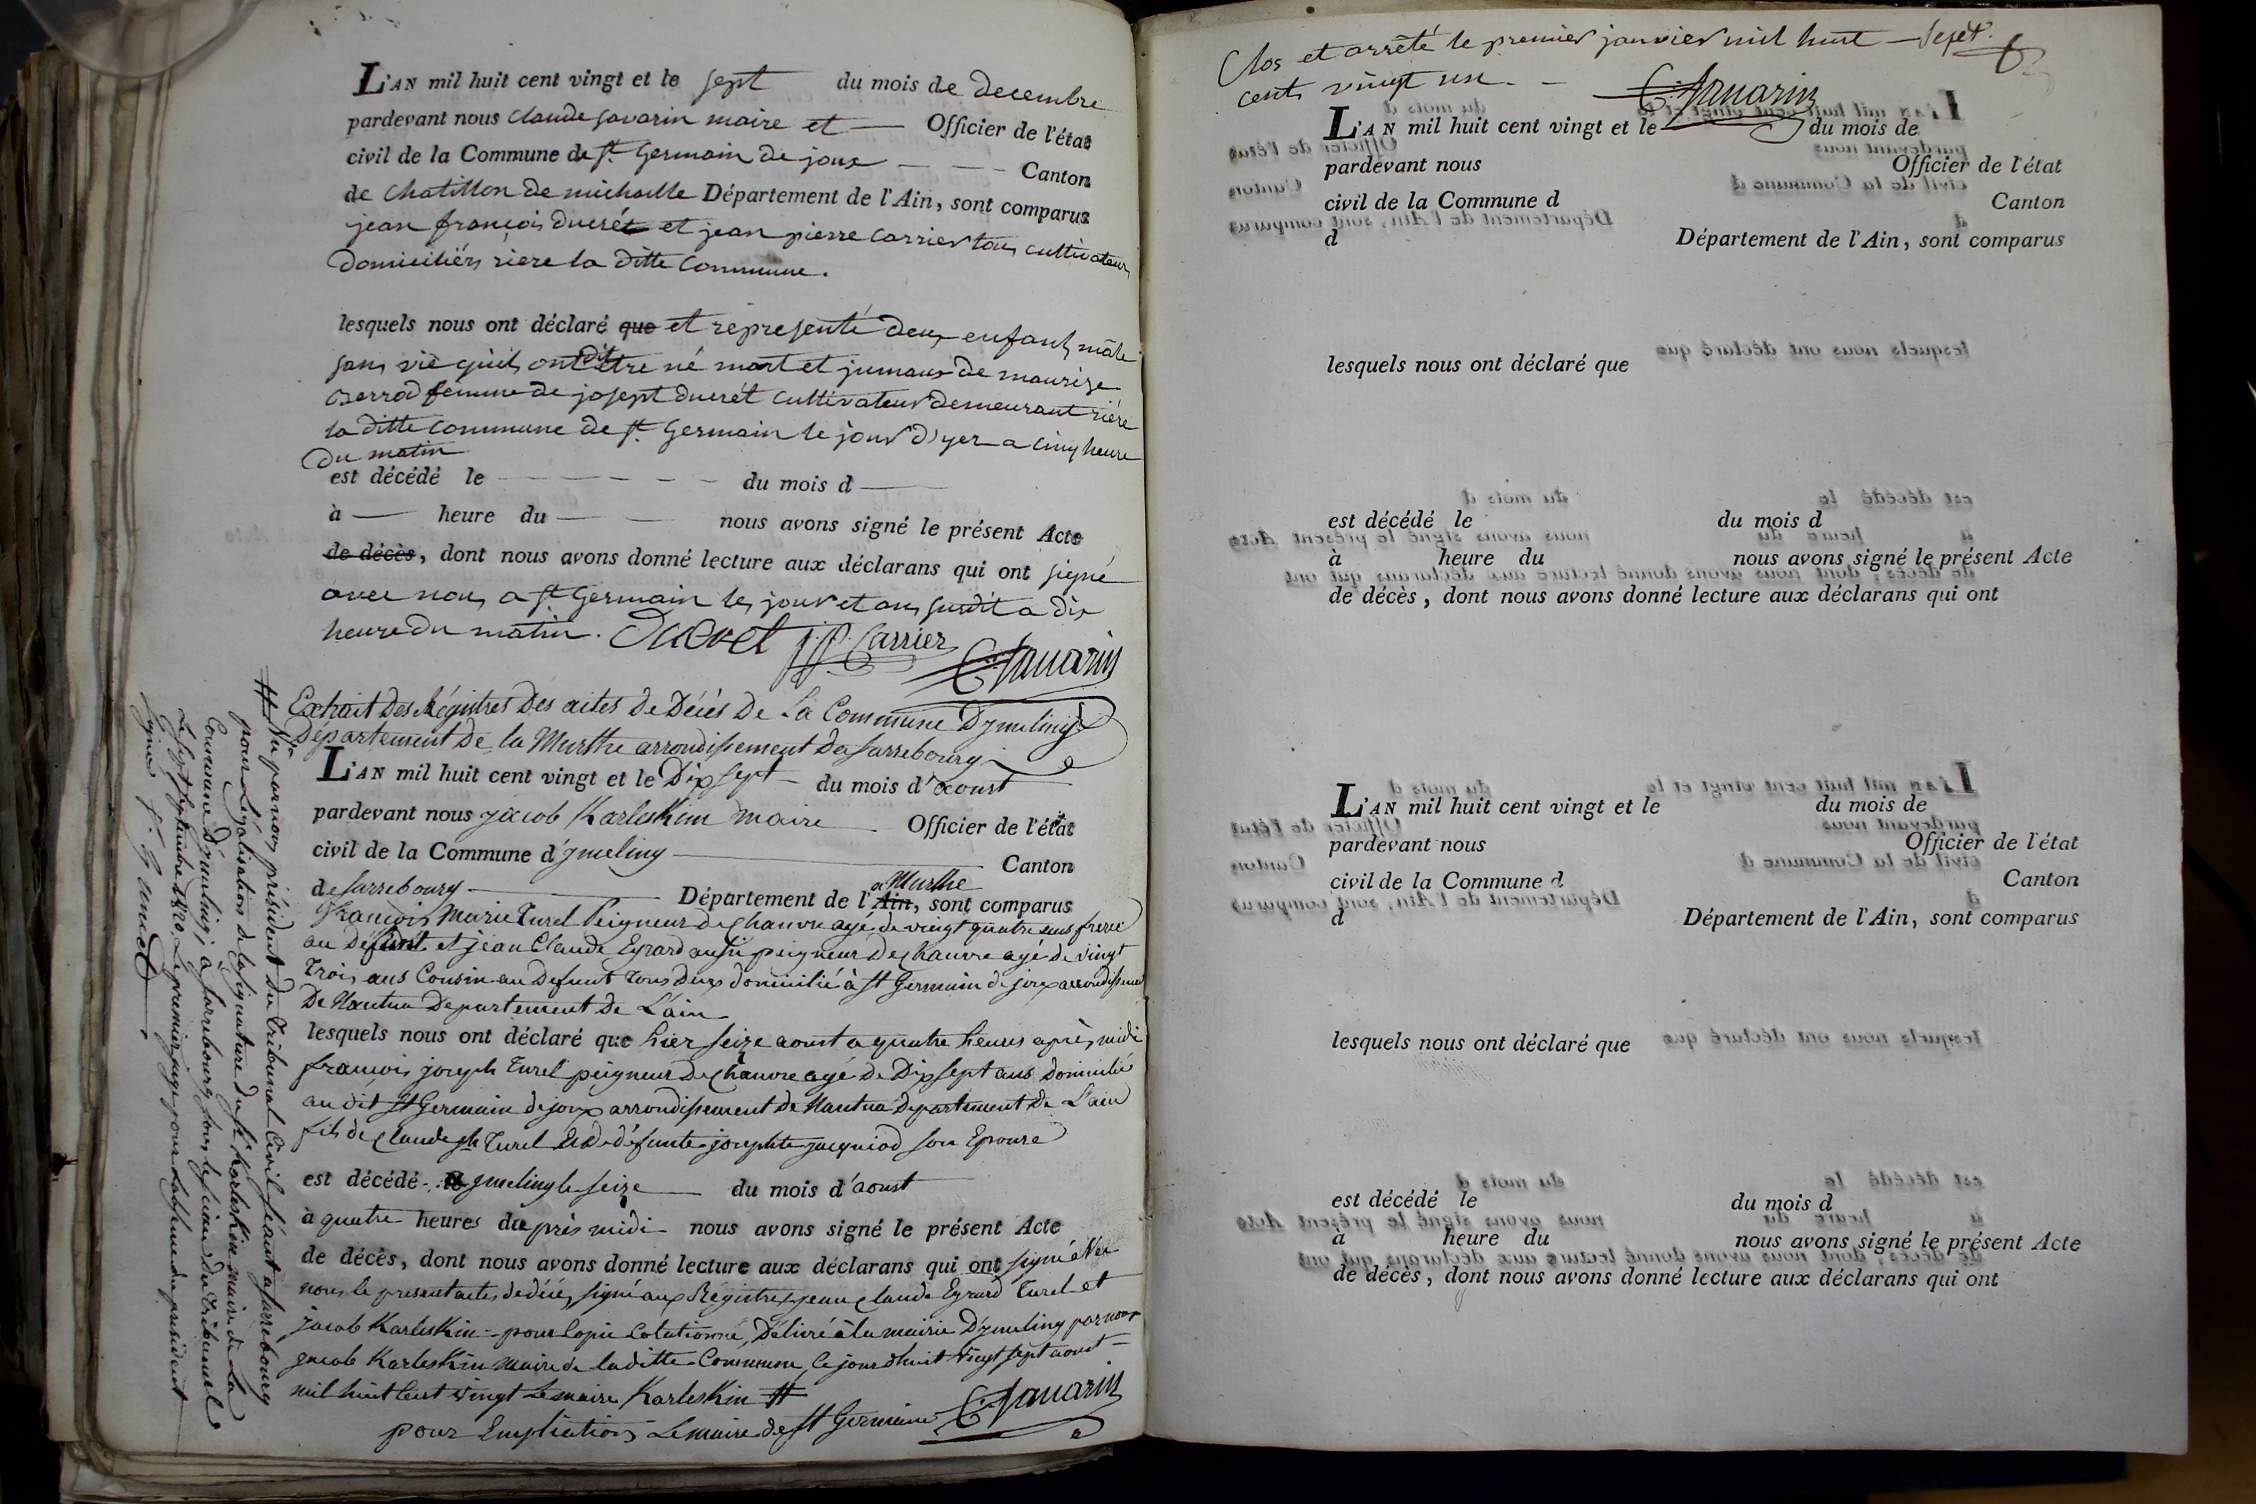 L'AN mil huit cent vingt et le sept du mois de decembre
pardevant nous claude savarin maire et — Officier de l'état
civil de la Commune de st. Germain de joux — — Canton
de chatillon de michaille Département de l'Ain, sont comparus
jean françois ducrét et jean pierre carrier tous cultivateurs
domiciliérs riere la ditte commune.
lesquels nous ont déclaré que et representé deux enfants mâle
sans vie quils ont dit etre né mort et jumaux de maurize
femme de josept ducrét cultivateur demeurant riére
la ditte commune de st. Germain le jour d'yer a cinq heure
du matin
est décédé le — — — — — — du mois d —
à — heure du — — nous avons signé le présent Acte
de décès, dont nous avons donné lecture aux déclarans qui ont signé
avec nous a st Germain les jour et an susdit a dix
heure du matin. Ducret J.P. Carrier C. Savarin
Extrait Des Régistres Des actes de Décès De La Commune D'ymeling
Département De la Murthe arrondissement De Sarrebourg
L'AN mil huit cent vingt et le Dix sept — du mois d'aoust
pardevant nous jacob Karleskin maire — Officier de l'état
civil de la Commune d'ymeling — Canton
de Sarrebourg — Département de l'Ain, sont comparus
la Murthe
françois Marie Turel Peigneur de chanvre agé de vingt quatre ans frere
au Défunt et jean Claude Eyrard aussi peigneur De chanvre agé de vingt
Trois ans Cousin au Defunt tous Deux domicilié à st Germain de joux arrondissement
De Nantua Departement de L'ain
lesquels nous ont déclaré que hier seize aoust a quatre heures après midi
françois joseph Turel peigneur De chanvre agé de Dix sept ans Domicilié
au dit st Germain de joux arrondissement de Nantua departement de L'ain
fils de Claude Turel & De défunte josephte jacquiod son Epouse
est décédé ymeling le seize — du mois d'aoust
à quatre heures du près midi — nous avons signé le présent Acte
de décès, dont nous avons donné lecture aux déclarans qui ont signé avec
nous le present actes de décès, signé aux Régistres jean Claude Eyrard Turel et
jacob Karleskin — pour Copie Colationné, Délivré à la mairie D'ymeling par nous
jacob Karleskin maire de la ditte Commune, Ce jourd'huit vingt sept aoust —
mil huit Cent vingt Le maire Karleskin #
pour Empliation Le maire de st Germain C. Savarin
# Vu par nous président du tribunal Civil séant a sarrebourg
pour Légalisation de la signature du sr. Karleskin maire de La
Commune D'ymeling, a sarrebourg sous le sceau du tribunal
Le sept septembre 1820 Le premier juge pour L'absence du président
signé
Clos et arrêté le premier janvier mil huit — sept.
cents vingt un — — C. Savarin
L'AN mil huit cent vingt et le du mois de
pardevant nous Officier de l'état
civil de la Commune d Canton
d Département de l'Ain, sont comparus
lesquels nous ont déclaré que
est décédé le du mois d
à heure du nous avons signé le présent Acte
de décès, dont nous avons donné lecture aux déclarans qui ont
L'AN mil huit cent vingt et le du mois de
pardevant nous Officier de l'état
civil de la Commune d Canton
d Département de l'Ain, sont comparus
lesquels nous ont déclaré que
est décédé le du mois d
à heure du nous avons signé le présent Acte
de décès, dont nous avons donné lecture aux déclarans qui ont